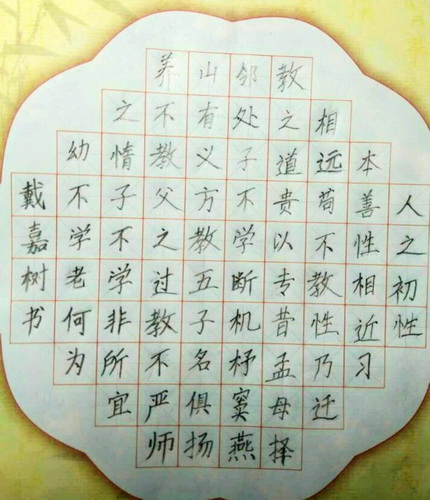 人之初性
本善性相近习
相远苟不教性乃迁
教之道贵以专昔孟母择
邻处子不学断机杼窦燕
山有义方教五子名俱扬
养不教父之过教不严师
之情子不学非所宜
幼不学老何为
戴嘉树书